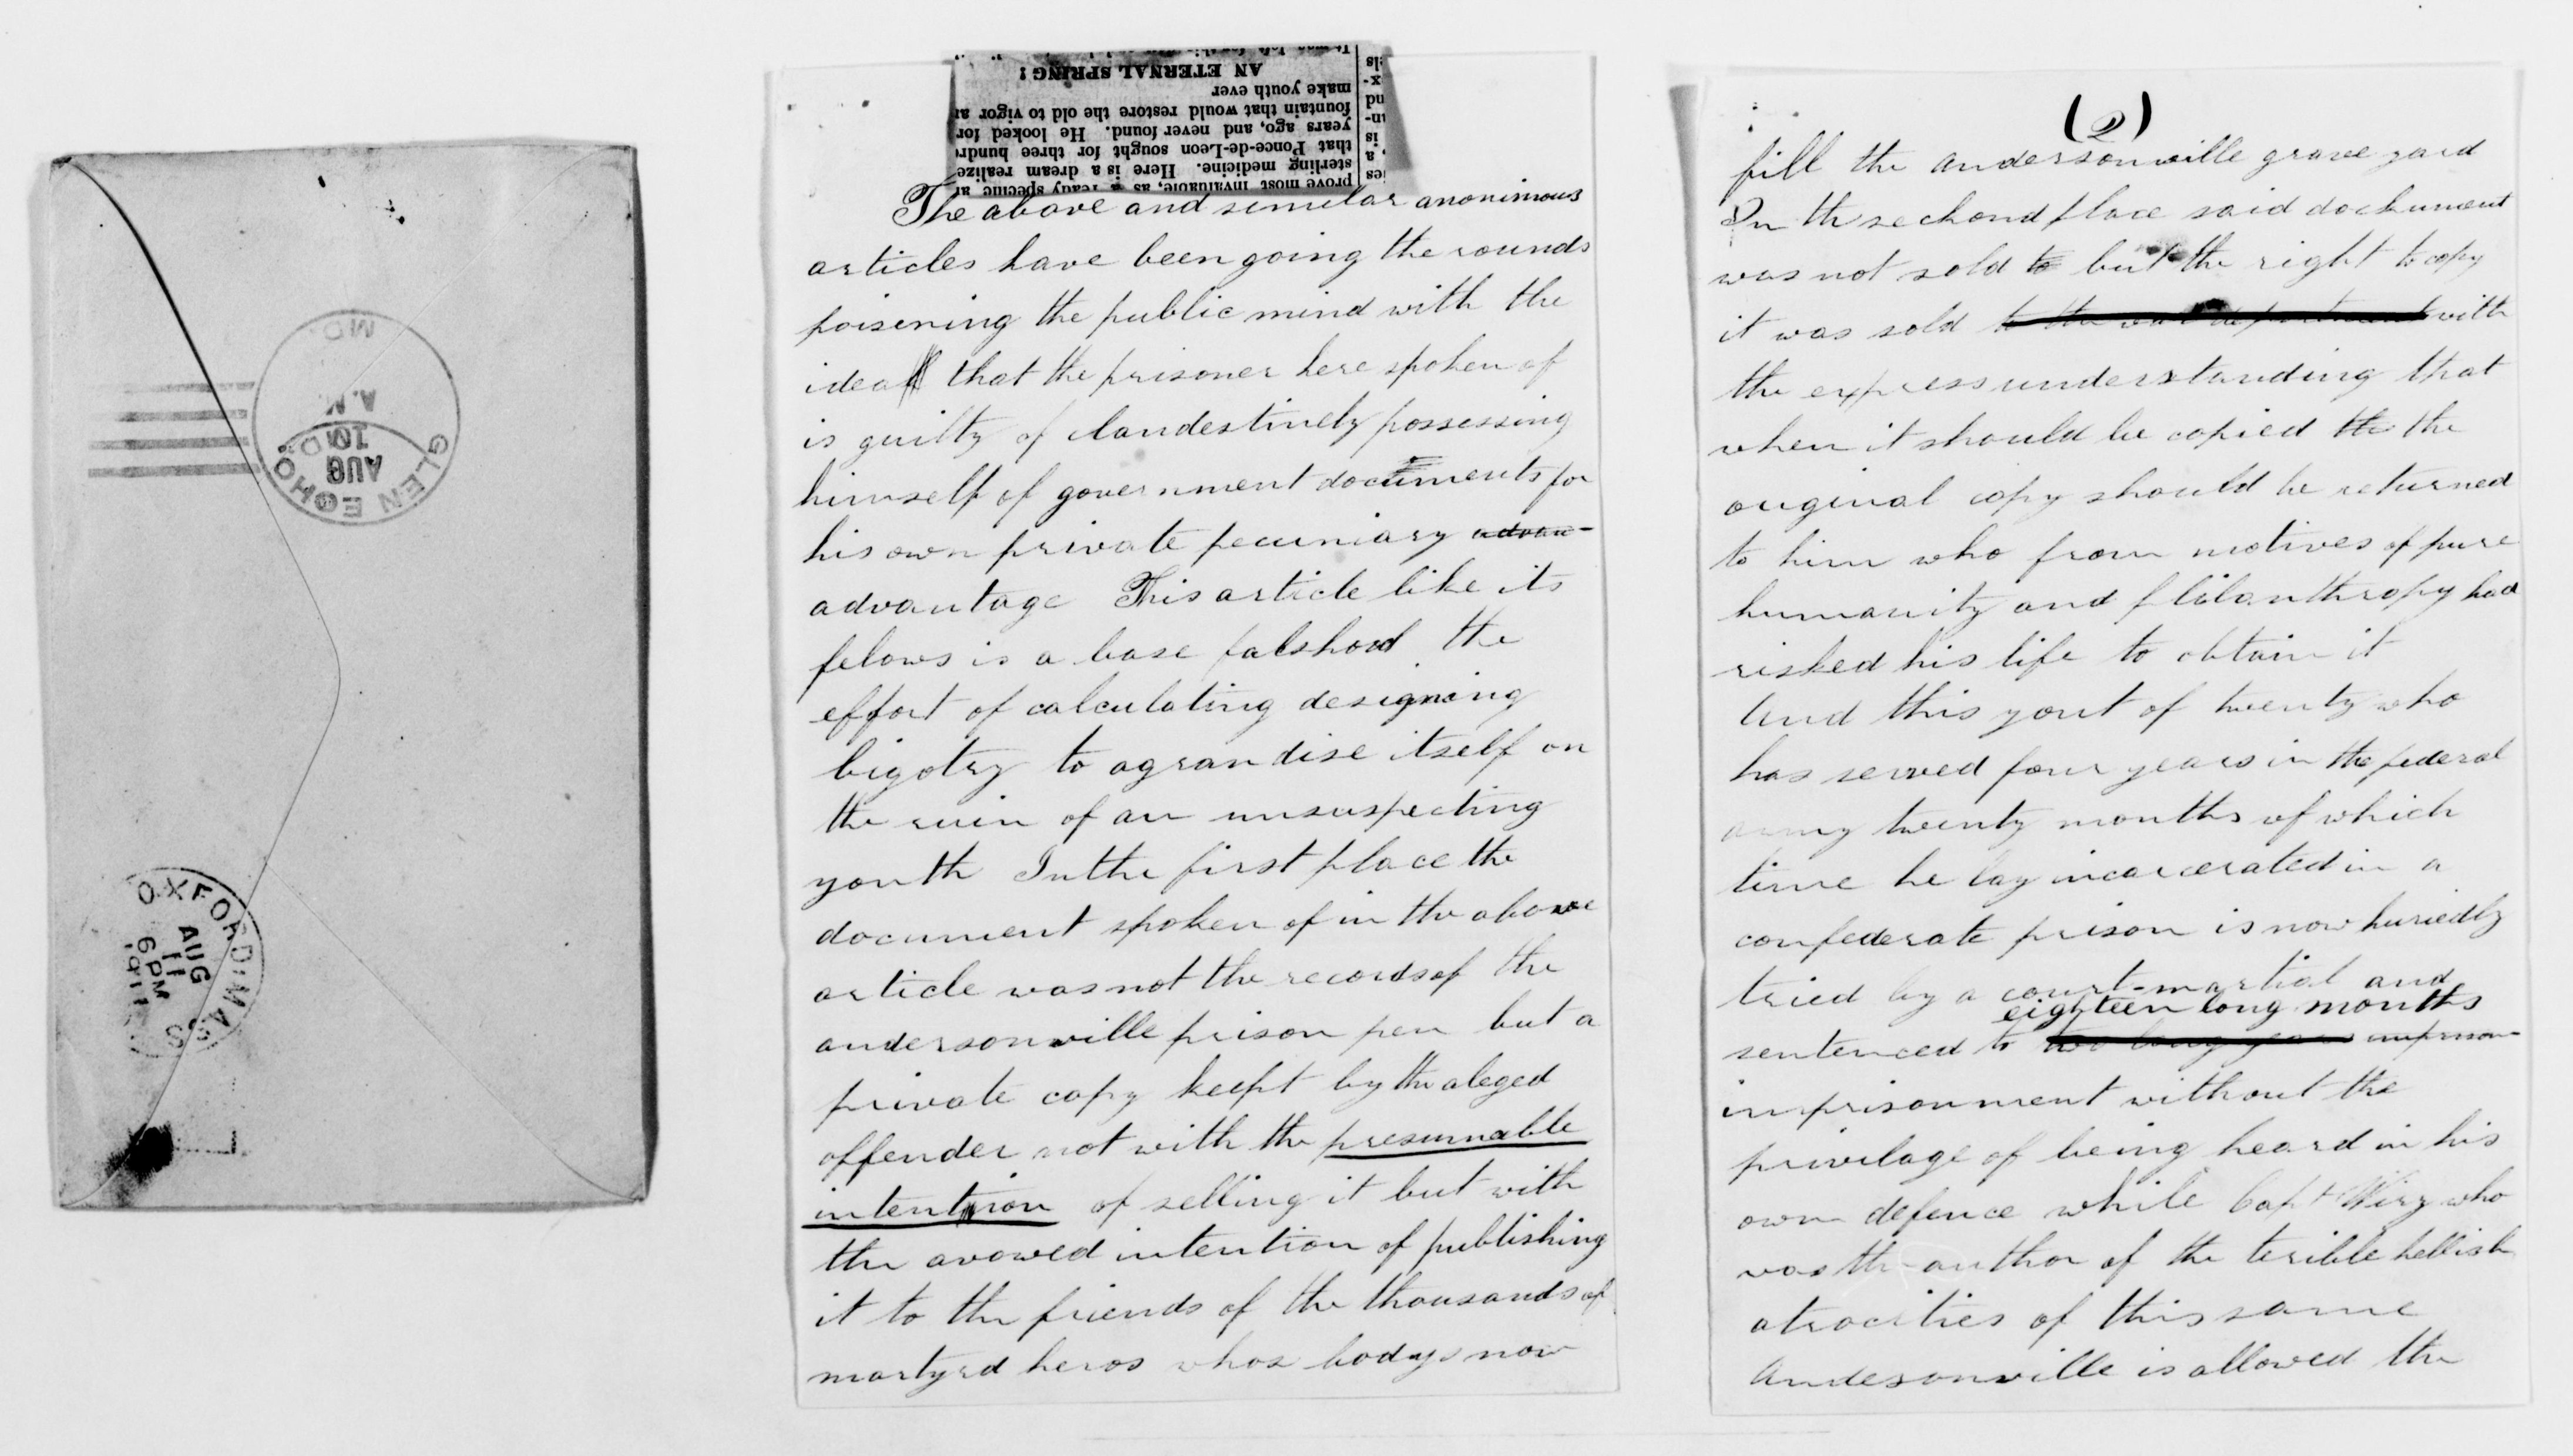 GLEN ECHO,
MD.
AUG
10
A.M.
OXFORD, MASS
AUG
11
6 PM
1911
AN ETERNAL SPRING!
make youth ever
fountain that would restore the old to vigor
years ago, and never found. He looked for
that Ponce-de-Leon sought for three hundr
sterling medicine. Here is a dream realize
prove most invaluable, as a ready specific
The above and similar anonimous
articles have been going the rounds
poisening the public mind with the
idea that the prisoner here spoken of
is guilty of clandestinely possessing
himself of government documents for
his own private pecuniary advan-
advantage This article like its
felows is a base falshood the
effort of calculating designing
bigotry to agrandise itself on
the ruin of an unsuspecting
youth In the first place the
document spoken of in the above
article was not the records of the
andersonville prison pen but a
private copy keept by the aleged
offender not with the presumable
intention of selling it but with
the avowed intention of publishing
it to the friends of the thousands of
martyrd heros whos bodys now
(2)
fill the andersonville grave yard
In the seckond place said dockument
was not sold to but the right to copy
it was sold to the war department with
the express understanding that
when it should be copied the the
original copy should be returned
to him who from motives of pure
humanity and philanthropy had
risked his life to obtain it
And this yout of twenty who
has served four years in the federal
army twenty months of which
time he lay incarcerated in a
confederate prison is now huriedly
tried by a court-martial and
eighteen long months
sentenced to two long years imprison
imprisonment without the
privilage of being heard in his
own defence while Capt Wirz who
was the author of the terible hellish
atrocities of this same
Andesonville is allowed the